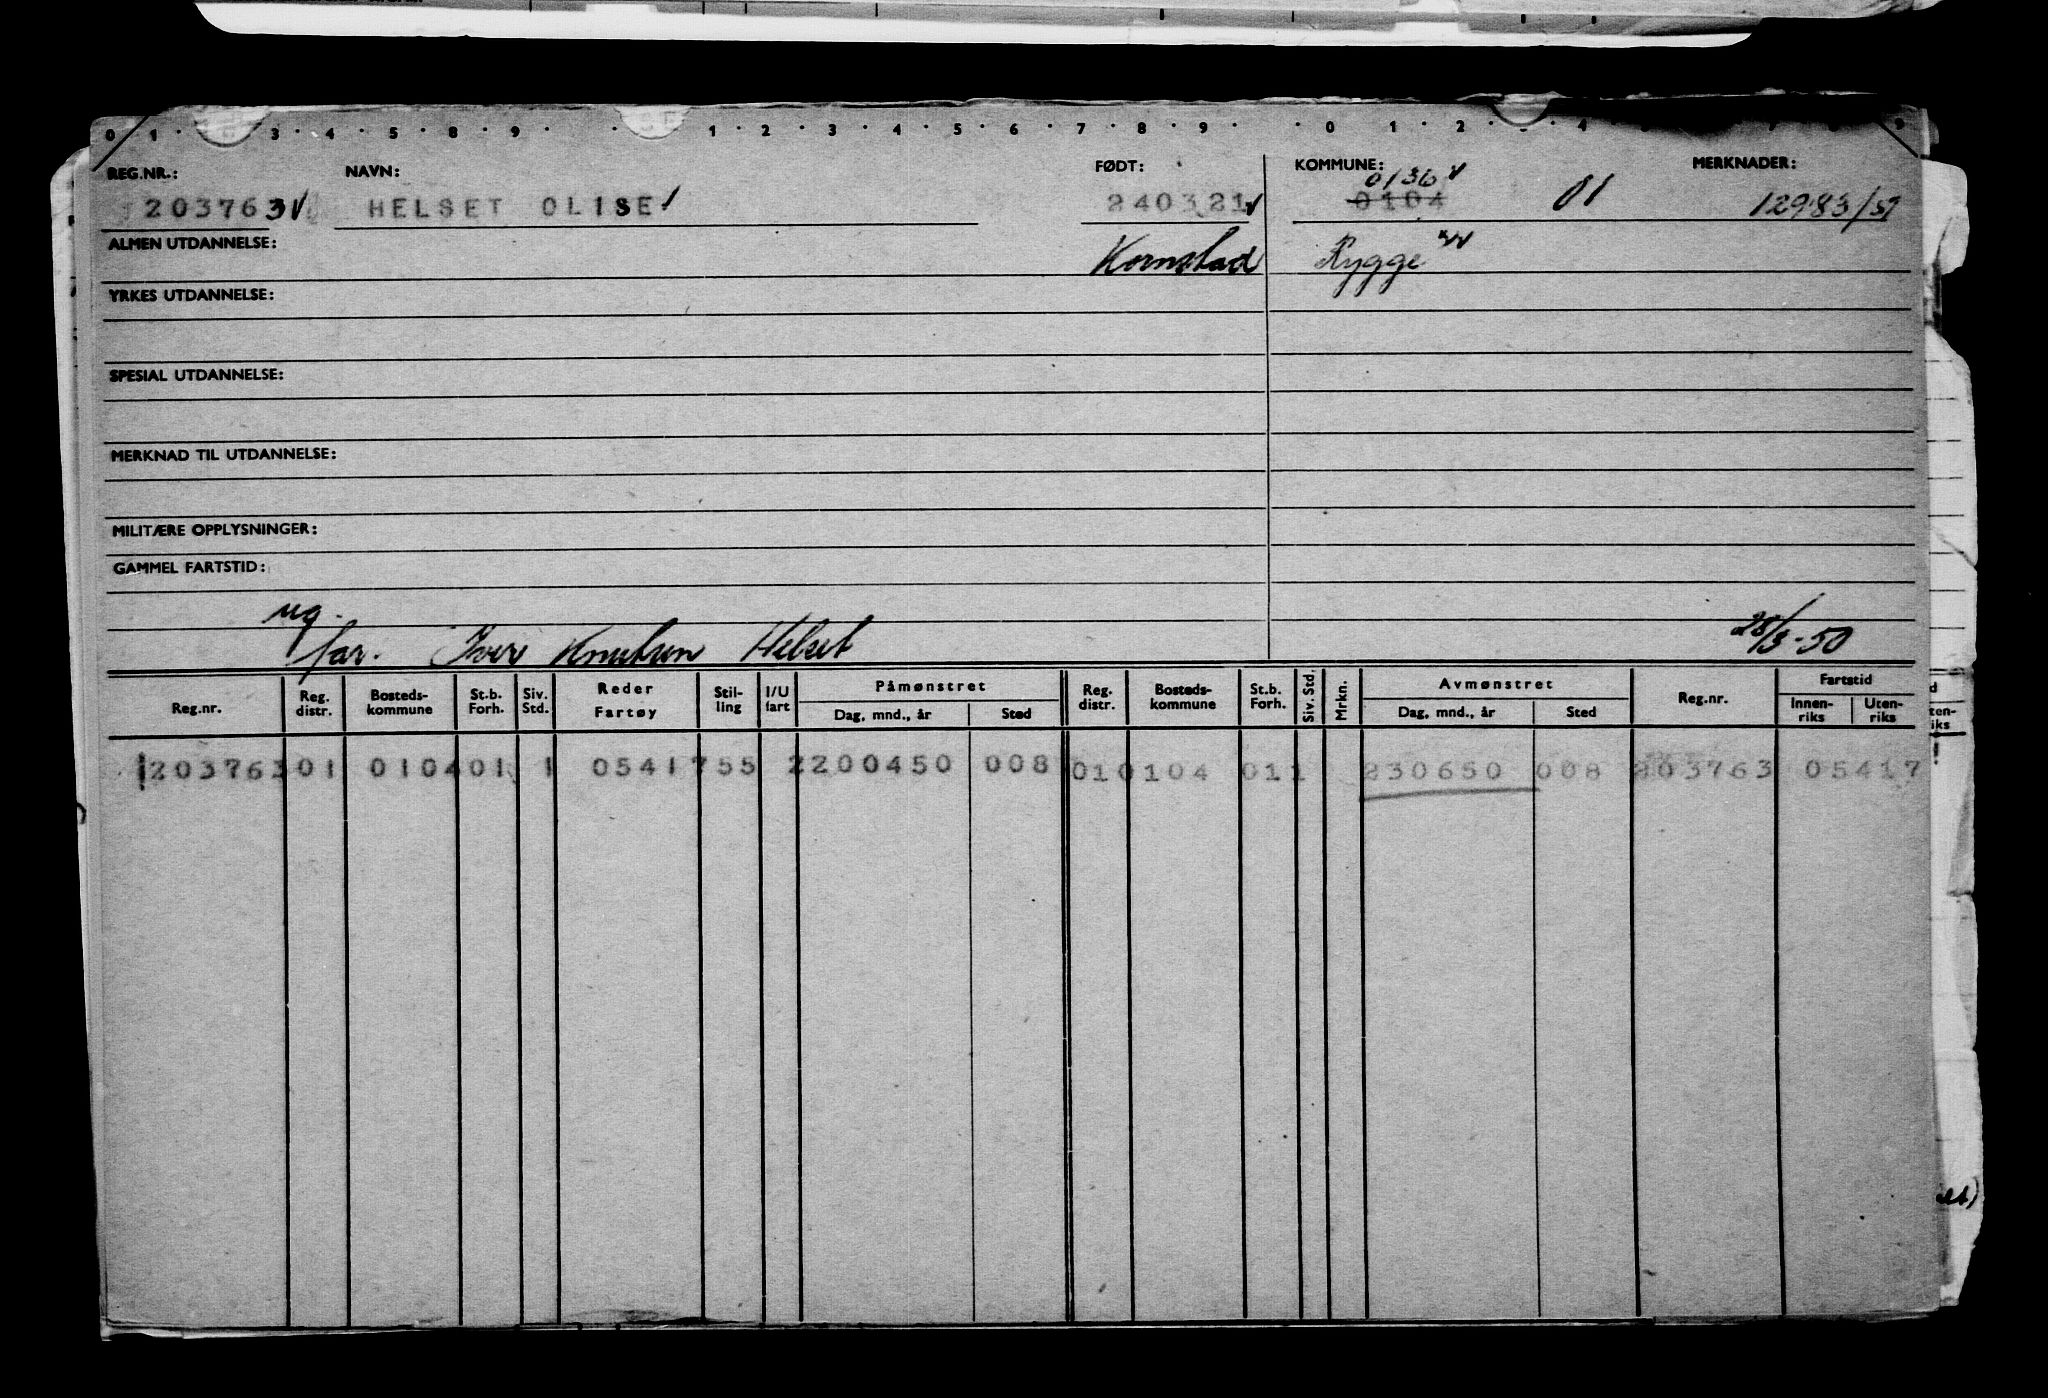 0 1 3 4 5 8 9 1 2 3 4 5 6 7 8 9 0 1 2 3 4 7 9
REG.NR.: NAVN: FØDT: KOMMUNE: MERKNADER:
0136 v
203763 v HELSET OLISE 240321 v 0104 01 12983/51
ALMEN UTDANNELSE: Kornstad Rygge
YRKES UTDANNELSE:
SPESIAL UTDANNELSE:
MERKNAD TIL UTDANNELSE:
MILITÆRE OPPLYSNINGER:
GAMMEL FARTSTID:
ug.
far. Iver Knutsen Helset 28/3-50
Reg.nr. Reg. distr. Bosteds-kommune St.b. Forh. Siv. Std. Reder Fartøy Stil-ling I/U fart Påmønstret Dag, mnd., år Sted Reg. distr. Bosteds-kommune St.b. Forh. Siv. Std. Mrkn. Avmønstret Dag, mnd., år Sted Reg.nr. Fartstid Innen-riks Uten-riks
203763 01 0104 01 1 05417 55 2 200450 008 01 0104 01 1 230650 008 203763 05417